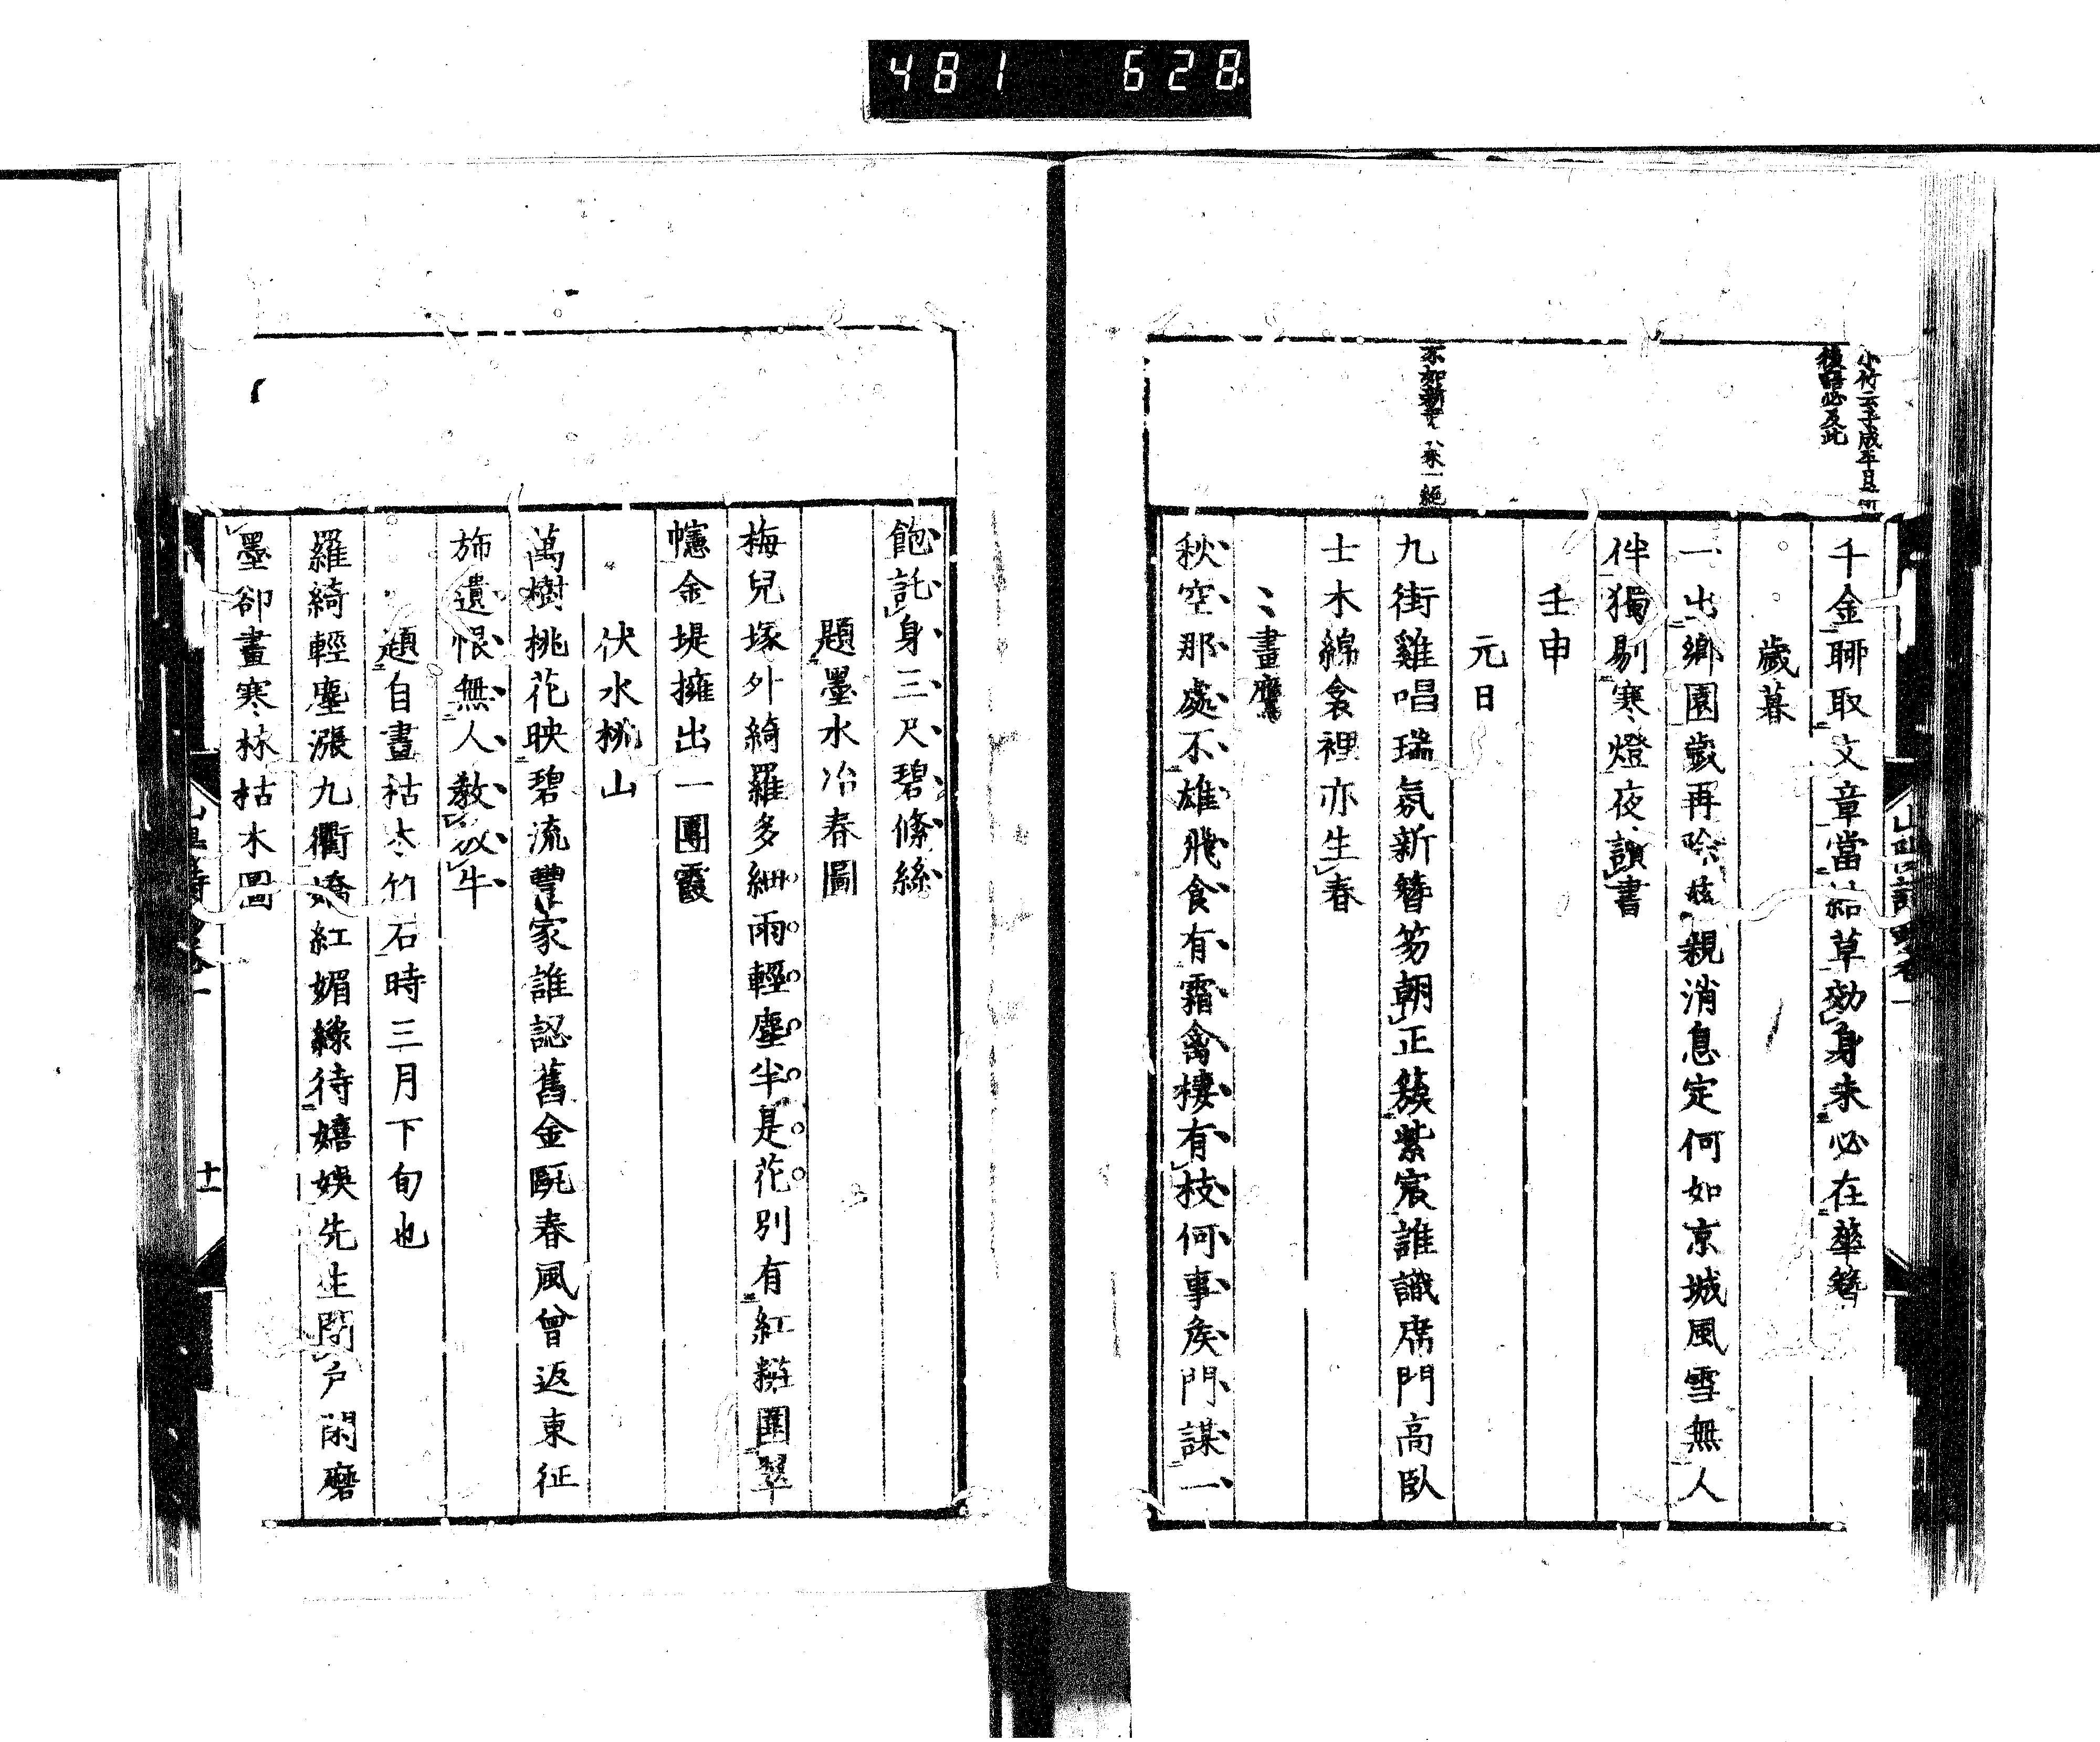 481 628
小竹云子成平日
後語必及此
千金聊取文章當結草効身未必在華簪
歲暮
一出鄉園歲再 玆親消息定何如京城風雪無人
伴獨剔寒燈夜讀書
壬申
元日
九街雞唱瑞氛新簪笏朝正簇紫宸誰識席門高臥
士木綿衾裡亦生春
畫鷹
秋空那處不雄飛食有霜禽棲有枝何事矦門謀一
飽託身三尺碧絛絲
題墨水冶春圖
梅兒塚外綺羅多細雨輕塵半是花別有紅粧圍翠
幰金堤擁出一團霞
伏水桃山
萬樹桃花映碧流豐家誰認舊金甌春風曾返東征
斾遺恨無人教放牛
題自畫枯木竹石時三月下旬也
羅綺輕塵漲九衢嬌紅媚綠待嬉娛先生閉戶閑磨
墨卻畫寒林枯木圖
十一